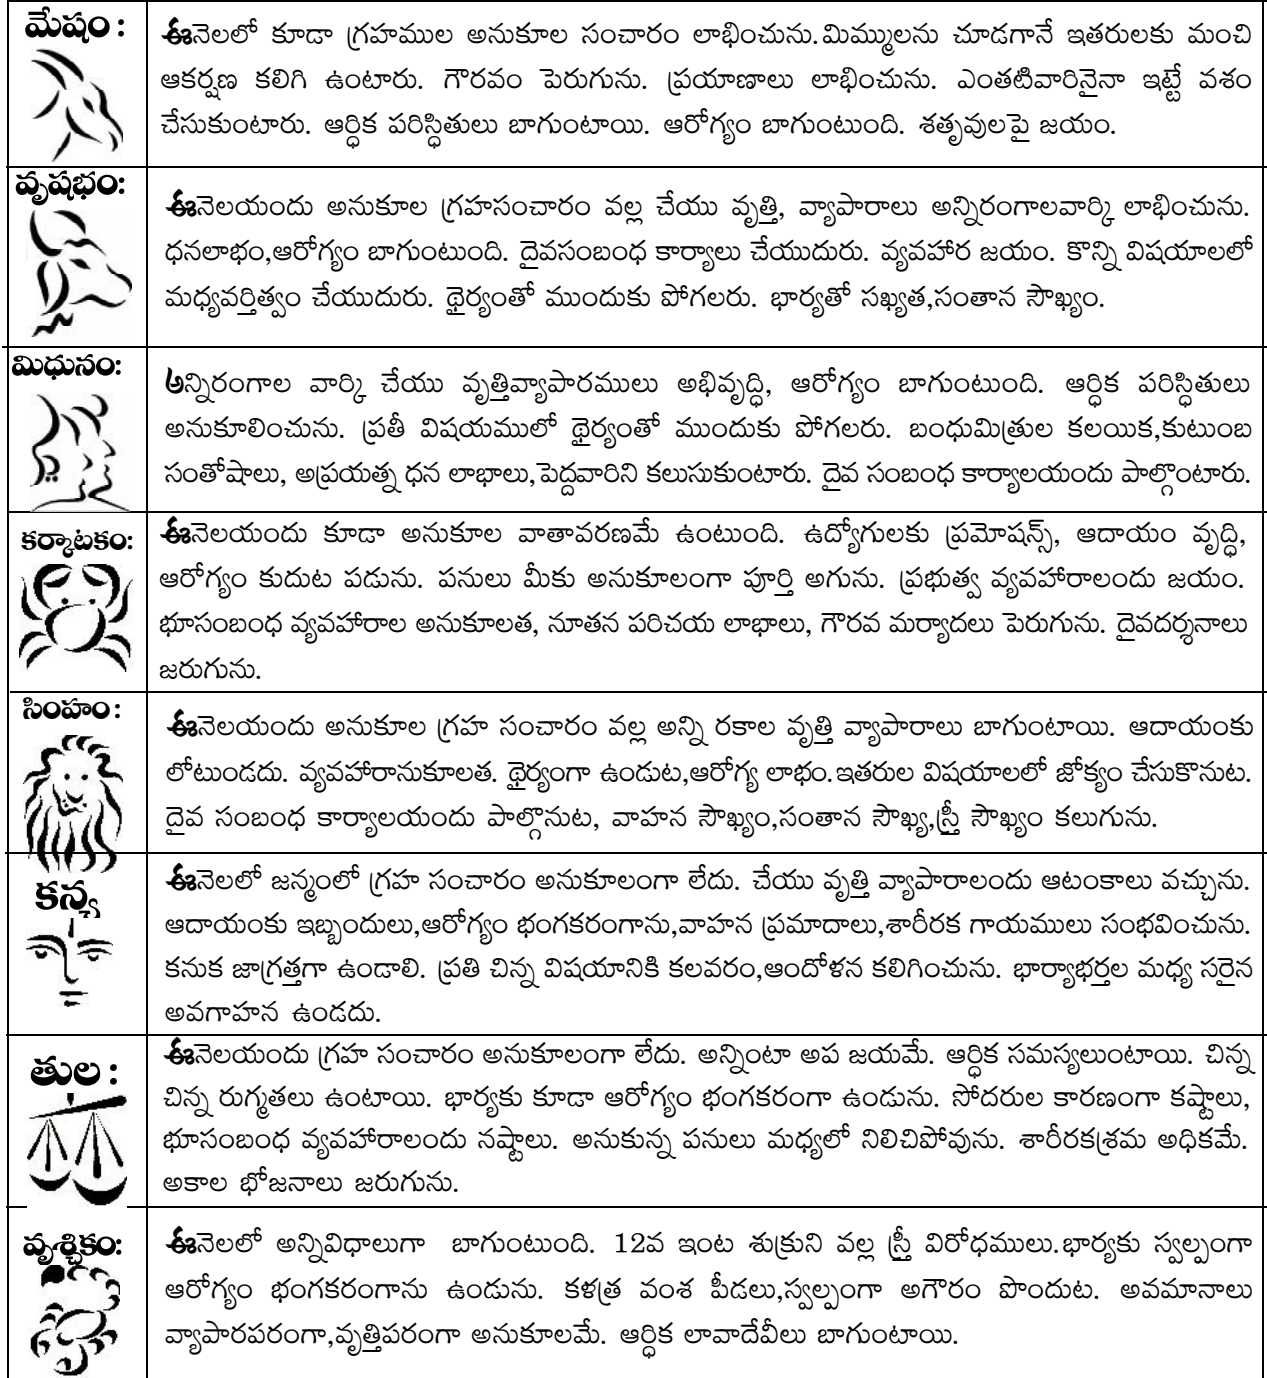 మేషం :
ఈనెలలో కూడా గ్రహముల అనుకూల సంచారం లాభించును.మిమ్ములను చూడగానే ఇతరులకు మంచి
ఆకర్షణ కలిగి ఉంటారు. గౌరవం పెరుగును. ప్రయాణాలు లాభించును. ఎంతటివారినైనా ఇట్టే వశం
చేసుకుంటారు. ఆర్ధిక పరిస్ధితులు బాగుంటాయి. ఆరోగ్యం బాగుంటుంది. శతృవులపై జయం.
వృషభం:
ఈనెలయందు అనుకూల గ్రహసంచారం వల్ల చేయు వృత్తి, వ్యాపారాలు అన్నిరంగాలవార్కి లాభించును.
ధనలాభం,ఆరోగ్యం బాగుంటుంది. దైవసంబంధ కార్యాలు చేయుదురు. వ్యవహార జయం. కొన్ని విషయాలలో
మధ్యవర్తిత్వం చేయుదురు. ధైర్యంతో ముందుకు పోగలరు. భార్యతో సఖ్యత,సంతాన సౌఖ్యం.
మిధునం:
అన్నిరంగాల వార్కి చేయు వృత్తివ్యాపారములు అభివృద్ధి, ఆరోగ్యం బాగుంటుంది. ఆర్ధిక పరిస్ధితులు
అనుకూలించును. ప్రతీ విషయములో ధైర్యంతో ముందుకు పోగలరు. బంధుమిత్రుల కలయిక,కుటుంబ
సంతోషాలు, అప్రయత్న ధన లాభాలు,పెద్దవారిని కలుసుకుంటారు. దైవ సంబంధ కార్యాలయందు పాల్గొంటారు.
కర్కాటకం:
ఈనెలయందు కూడా అనుకూల వాతావరణమే ఉంటుంది. ఉద్యోగులకు ప్రమోషన్స్, ఆదాయం వృద్ధి,
ఆరోగ్యం కుదుట పడును. పనులు మీకు అనుకూలంగా పూర్తి అగును. ప్రభుత్వ వ్యవహారాలందు జయం.
భూసంబంధ వ్యవహారాల అనుకూలత, నూతన పరిచయ లాభాలు, గౌరవ మర్యాదలు పెరుగును. దైవదర్శనాలు
జరుగును.
సింహం :
ఈనెలయందు అనుకూల గ్రహ సంచారం వల్ల అన్ని రకాల వృత్తి వ్యాపారాలు బాగుంటాయి. ఆదాయంకు
లోటుండదు. వ్యవహారానుకూలత. ధైర్యంగా ఉండుట,ఆరోగ్య లాభం.ఇతరుల విషయాలలో జోక్యం చేసుకొనుట.
దైవ సంబంధ కార్యాలయందు పాల్గొనుట, వాహన సౌఖ్యం,సంతాన సౌఖ్య,స్త్రీ సౌఖ్యం కలుగును.
కన్య
ఈనెలలో జన్మంలో గ్రహ సంచారం అనుకూలంగా లేదు. చేయు వృత్తి వ్యాపారాలందు ఆటంకాలు వచ్చును.
ఆదాయంకు ఇబ్బందులు,ఆరోగ్యం భంగకరంగాను,వాహన ప్రమాదాలు,శారీరక గాయములు సంభవించును.
కనుక జాగ్రత్తగా ఉండాలి. ప్రతి చిన్న విషయానికి కలవరం,ఆందోళన కలిగించును. భార్యాభర్తల మధ్య సరైన
అవగాహన ఉండదు.
తుల :
ఈనెలయందు గ్రహ సంచారం అనుకూలంగా లేదు. అన్నింటా అప జయమే. ఆర్ధిక సమస్యలుంటాయి. చిన్న
చిన్న రుగ్మతలు ఉంటాయి. భార్యకు కూడా ఆరోగ్యం భంగకరంగా ఉండును. సోదరుల కారణంగా కష్టాలు,
భూసంబంధ వ్యవహారాలందు నష్టాలు. అనుకున్న పనులు మధ్యలో నిలిచిపోవును. శారీరకశ్రమ అధికమే.
అకాల భోజనాలు జరుగును.
వృశ్చికం:
ఈనెలలో అన్నివిధాలుగా బాగుంటుంది. 12వ ఇంట శుక్రుని వల్ల స్త్రీ విరోధములు.భార్యకు స్వల్పంగా
ఆరోగ్యం భంగకరంగాను ఉండును. కళత్ర వంశ పీడలు,స్వల్పంగా అగౌరం పొందుట. అవమానాలు
వ్యాపారపరంగా,వృత్తిపరంగా అనుకూలమే. ఆర్ధిక లావాదేవీలు బాగుంటాయి.